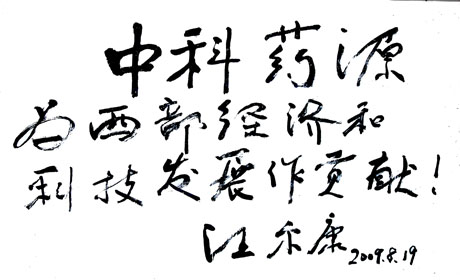 中科药源
为西部经济和
科技发展作贡献！
汪尔康 2009.8.19